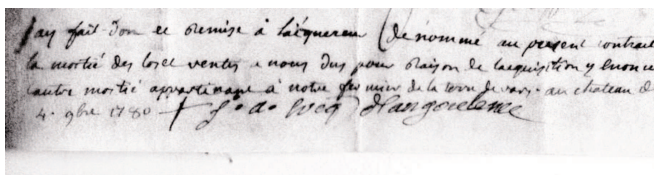 jay fait don et remise à l'acquereur denommé au present contrait
la mortié des los et ventes a nous dus pour raison de lacquisition y enonce
l'autre mortié appartenant à notre fermier de la terre de vars. au chateau de
4. 9bre 1780 + d'angouleme